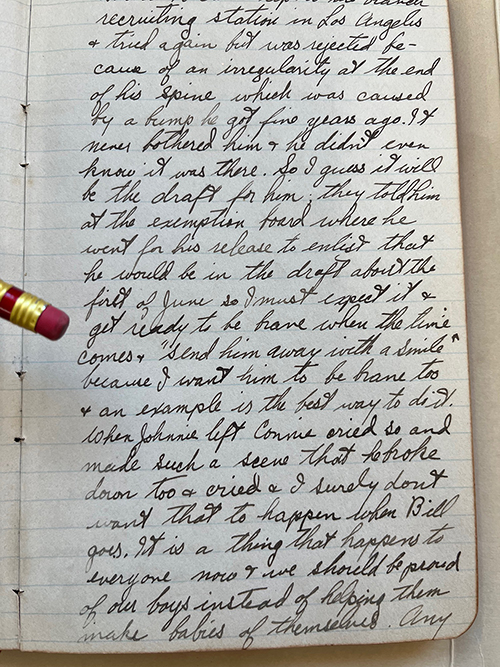 recruiting station in Los Angeles
& tried again but was rejected be-
cause of an irregularity at the end
of his spine which was caused
by a bump he got five years ago. It
never bothered him & he didn't even
know it was there. So I guess it will
be the draft for him; they told him
at the exemption board where he
went for his release to enlist that
he would be in the draft about the
first of June so I must expect it &
get ready to be brave when the time
comes & "send him away with a smile"
because I want him to be brave too
& an example is the best way to do it.
When Johnnie left Connie cried so and
made such a scene that he broke
down too & cried & I surely don't
want that to happen when Bill
goes. It is a thing that happens to
everyone now & we should be proud
of our boys instead of helping them
make babies of themselves. Any